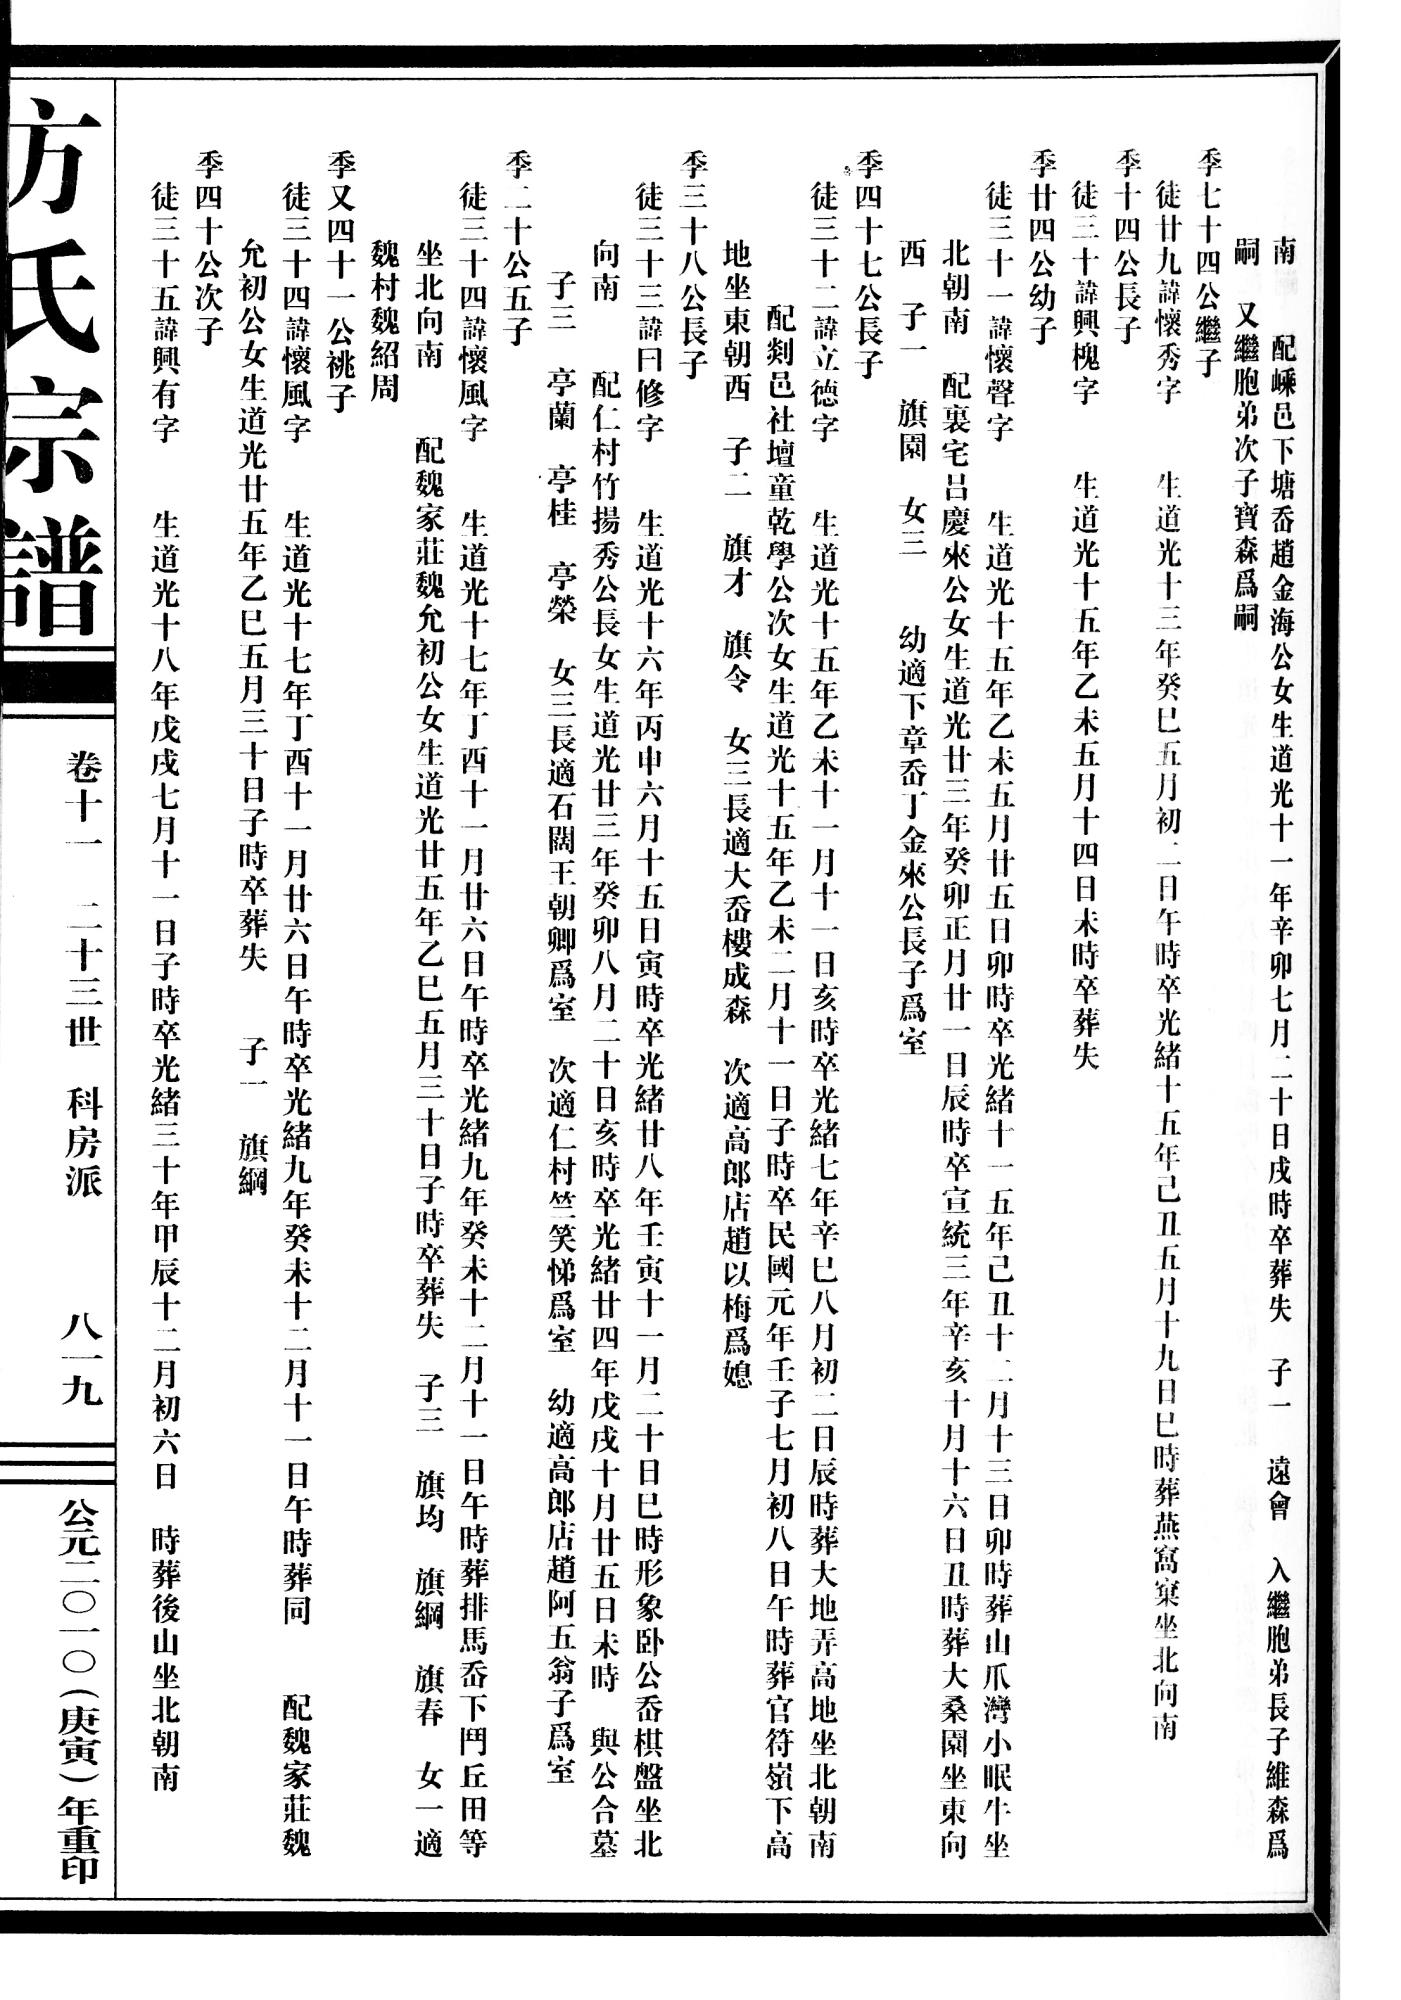 南　配嵊邑下塘岙趙金海公女生道光十一年辛卯七月二十日戌時卒葬失　子一　遠會　入繼胞弟長子維森爲
嗣　又繼胞弟次子寶森爲嗣
季七十四公繼子
徒廿九諱懷秀字　生道光十三年癸巳五月初二日午時卒光緒十五年己丑五月十九日巳時葬燕窩窠坐北向南
季十四公長子
徒三十諱興槐字　生道光十五年乙未五月十四日未時卒葬失
季廿四公幼子
徒三十一諱懷聲字　生道光十五年乙未五月廿五日卯時卒光緒十一五年己丑十二月十三日卯時葬山爪灣小眠牛坐
北朝南　配裏宅呂慶來公女生道光廿三年癸卯正月廿一日辰時卒宣統三年辛亥十月十六日丑時葬大桑園坐東向
西　子一　旗園　女三　幼適下章岙丁金來公長子爲室
季四十七公長子
徒三十二諱立德字　生道光十五年乙未十一月十一日亥時卒光緒七年辛巳八月初二日辰時葬大地弄高地坐北朝南
配剡邑社壇童乾學公次女生道光十五年乙未二月十一日子時卒民國元年壬子七月初八日午時葬官符嶺下高
地坐東朝西　子二　旗才　旗令　女三長適大岙樓成森　次適高郎店趙以梅爲媳
季三十八公長子
徒三十三諱曰修字　生道光十六年丙申六月十五日寅時卒光緒廿八年壬寅十一月二十日巳時形象卧公岙棋盤坐北
向南　配仁村竹揚秀公長女生道光廿三年癸卯八月二十日亥時卒光緒廿四年戊戌十月廿五日未時　與公合墓
子三　亭蘭　亭桂　亭榮　女三長適石闊王朝卿爲室　次適仁村竺笑悌爲室　幼適高郎店趙阿五翁子爲室
季二十公五子
徒三十四諱懷風字　生道光十七年丁酉十一月廿六日午時卒光緒九年癸未十二月十一日午時葬排馬岙下鬥丘田等
坐北向南　配魏家莊魏允初公女生道光廿五年乙巳五月三十日子時卒葬失　子三　旗均　旗綱　旗春　女一適
魏村魏紹周
季又四十一公祧子
徒三十四諱懷風字　生道光十七年丁酉十一月廿六日午時卒光緒九年癸未十二月十一日午時葬同　配魏家莊魏
允初公女生道光廿五年乙巳五月三十日子時卒葬失　子一　旗綱
季四十公次子
徒三十五諱興有字　生道光十八年戊戌七月十一日子時卒光緒三十年甲辰十二月初六日　時葬後山坐北朝南
方氏宗譜
卷十一　二十三世　科房派　八一九
公元二〇一〇（庚寅）年重印